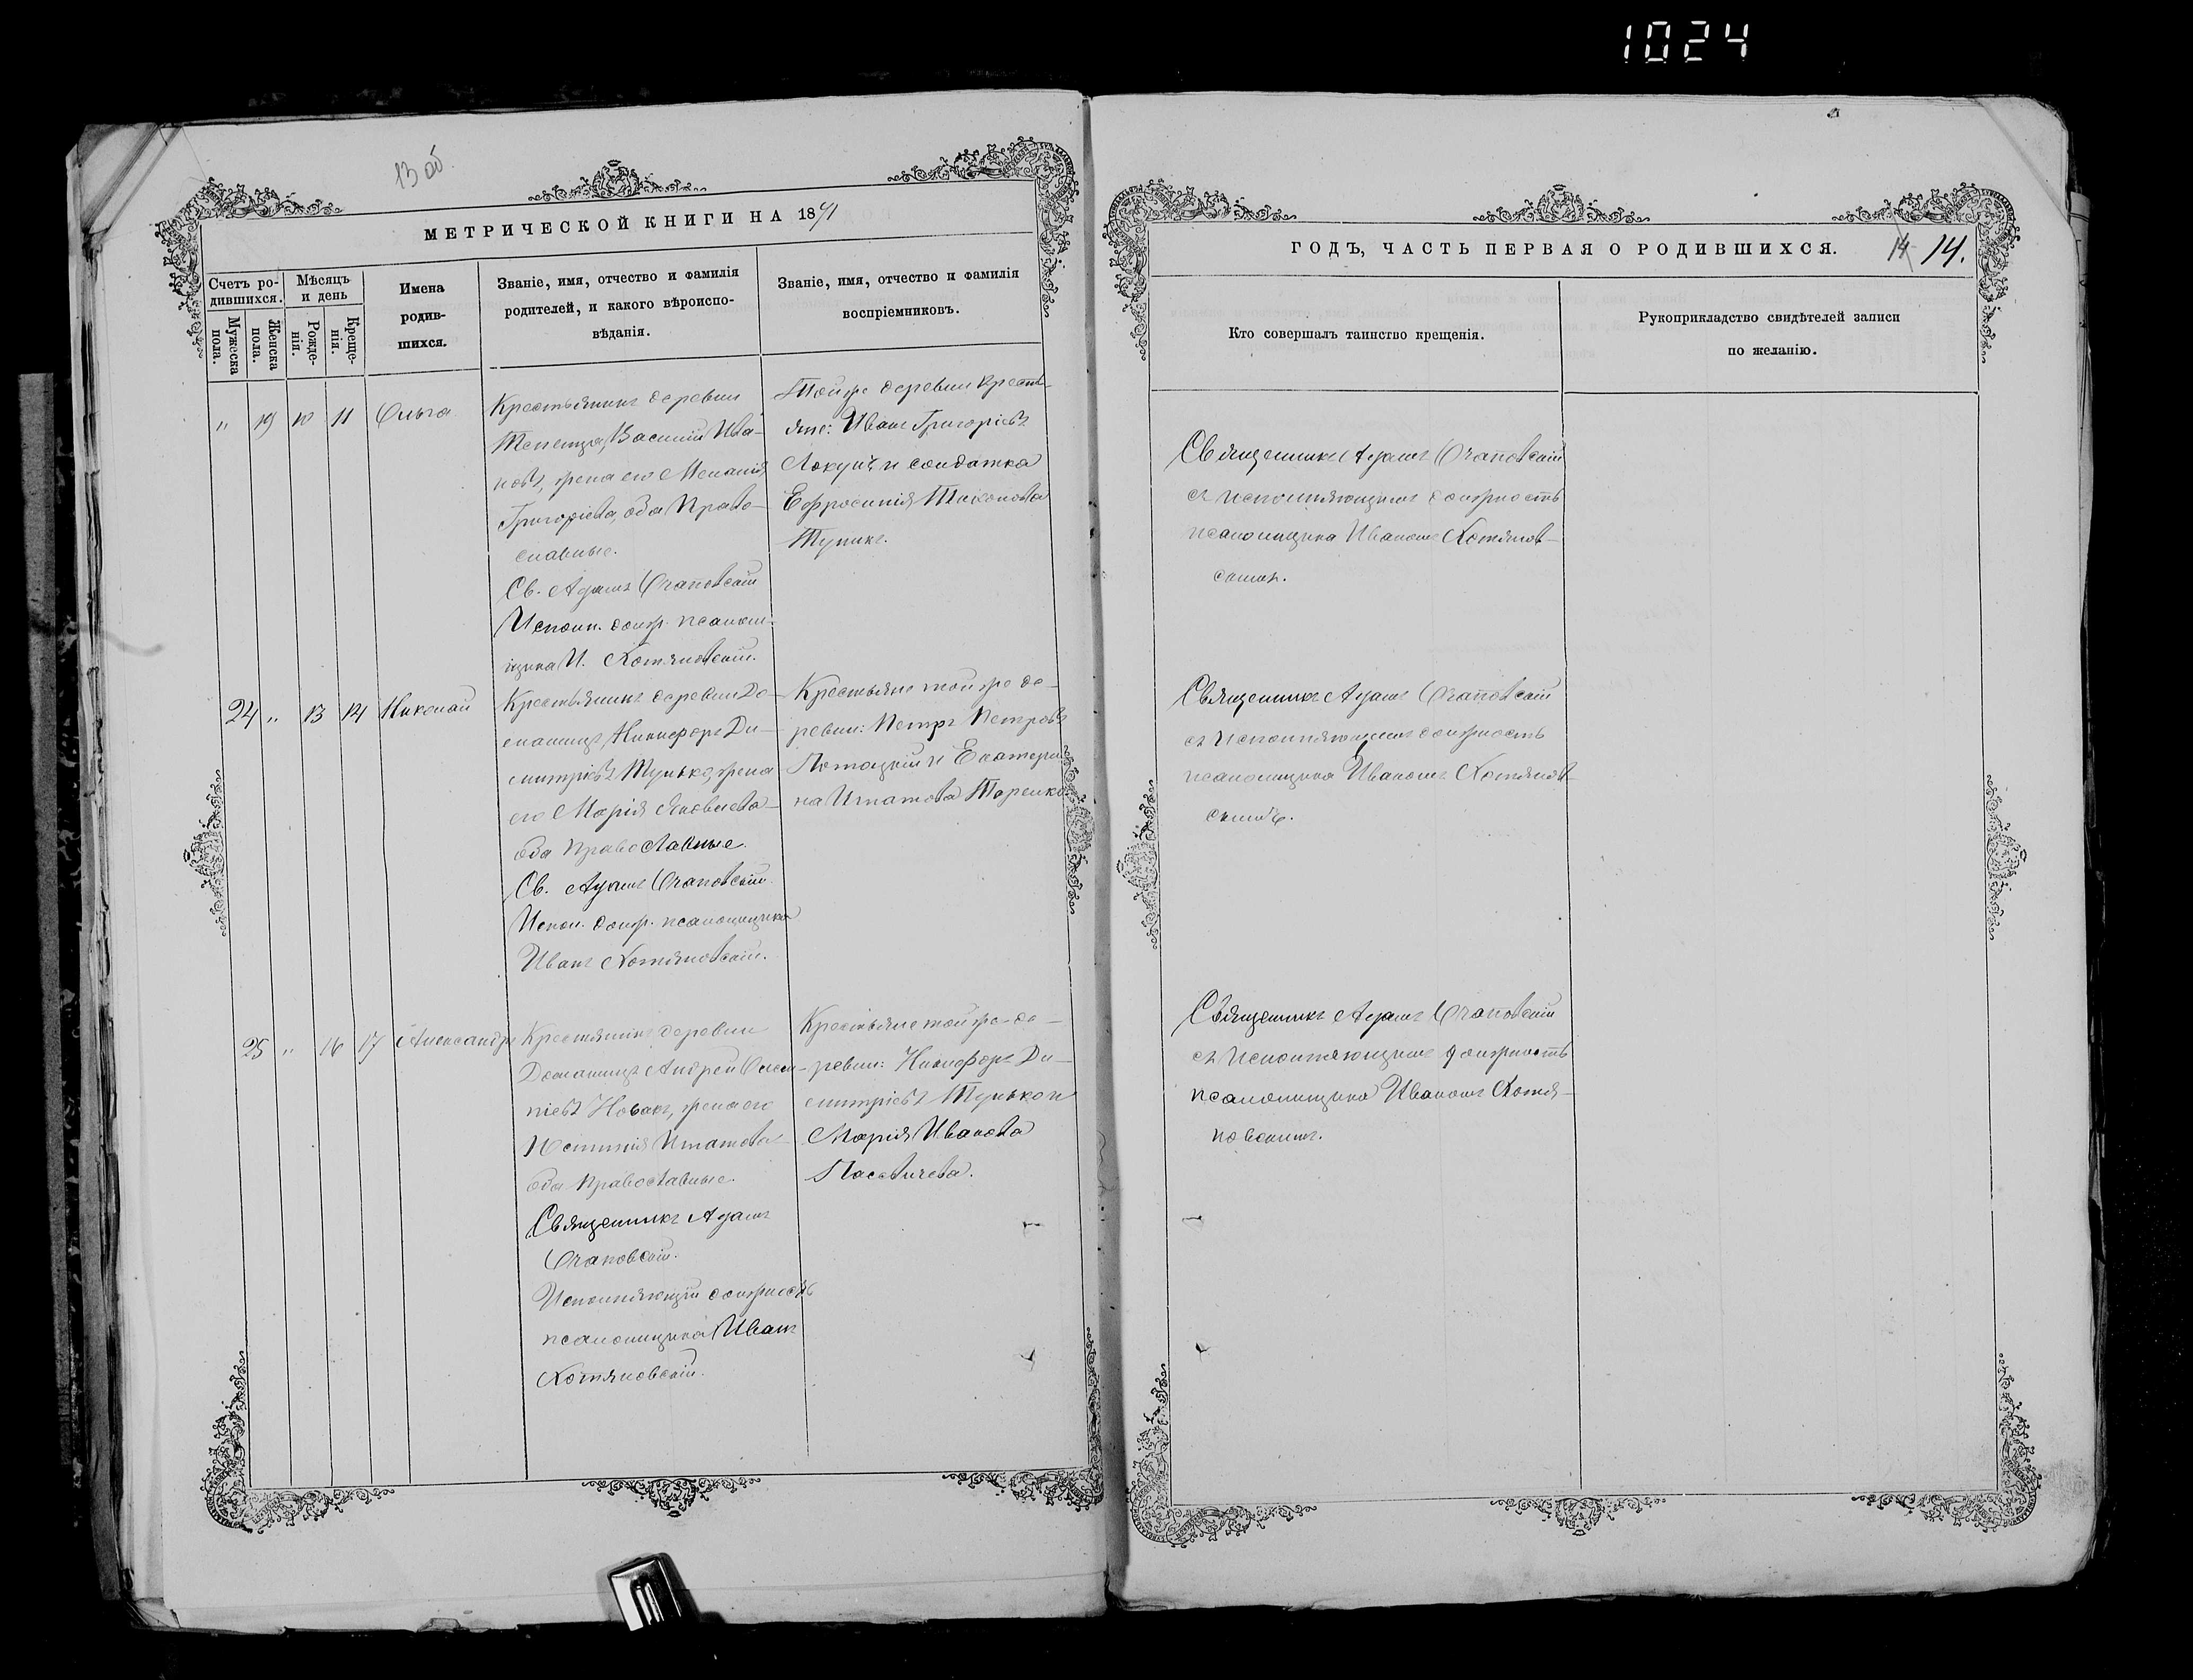 1024
13 об.
МЕТРИЧЕСКОЙ КНИГИ НА 18
Счетъ ро-
дившихся.
Мужеска
пола.
Женска
пола.
Мѣсяцъ
и день
Рожде-
нія.
Креще-
нія.
Имена
родив-
шихся.
Званіе, имя, отчество и фамилія
родителей, и какого вѣроиспо-
вѣданія.
Званіе, имя, отчество и фамилія
воспріемниковъ.
" 19 10 11 Ольга
Крестьянинъ деревни
Василій Ива-
новъ, жена его Меланія
Григорієва, оба Право-
славные.
Св. Адамъ
Исполн. долж. псалом-
щика И. Котяновскій.
Тойже деревни кресть-
яне: Иванъ Григорієвъ
и солдатка
Ефросинія Тихонова
Тупикъ.
24 " 13 14 Николай
Крестьянинъ деревни До-
машицъ Никифоръ Ди-
митріевъ Мулько, жена
его Марія Яковлева
оба православные.
Св. Адамъ
Испол. долж. псаломщика
Иванъ Котяновскій.
Крестьяне тойже де-
ревни: Петръ Петровъ
и Екатери-
на Игнатова
25 " 16 17 Александръ
Крестянинъ деревни
Домашицъ Андрей
Новакъ, жена его
Игнатова
оба православные.
Священникъ Адамъ
Исполняющій должность
псаломщика Иванъ
Котяновскій.
Крестьяне тойже де-
ревни: Никифоръ Ди-
митріевъ Мулько и
Марія Иванова
ГОДЪ, ЧАСТЬ ПЕРВАЯ О РОДИВШИХСЯ.
14 14.
Кто совершалъ таинство крещенія.
Рукоприкладство свидѣтелей записи
по желанію.
Священникъ Адамъ
съ исполняющимъ должность
псаломщика Иваномъ Котянов-
скимъ.
Священникъ Адамъ
съ исполняющимъ должность
псаломщика Иваномъ Котянов-
скимъ.
Священникъ Адамъ
съ исполняющимъ должность
псаломщика Иваномъ Котя-
новскимъ.